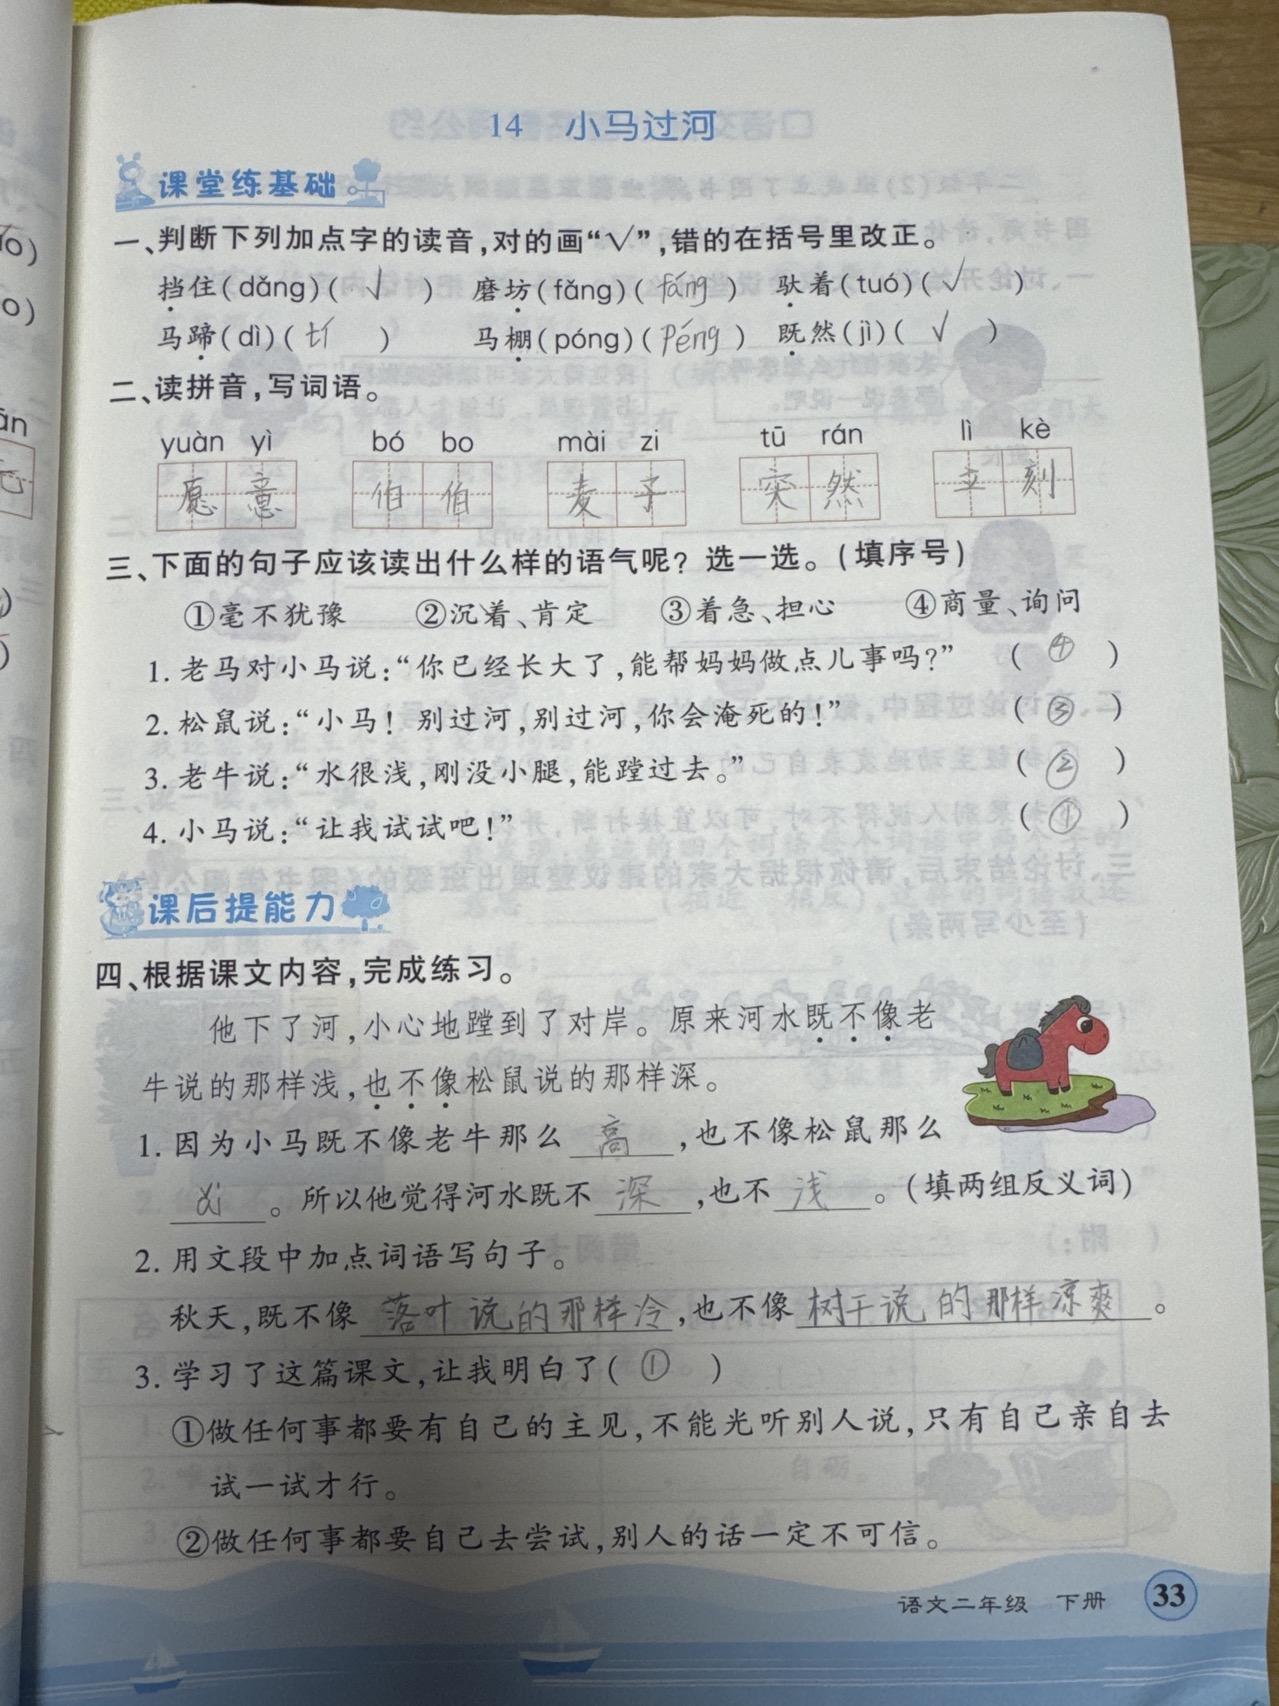 14 小马过河
课堂练基础
一、判断下列加点字的读音,对的画“√”,错的在括号里改正。
挡住(dǎng)( √ ) 磨坊(fǎng)( fáng ) 驮着(tuó)( √ )
马蹄(dì)( tí ) 马棚(póng)( péng ) 既然(jì)( √ )
二、读拼音,写词语。
yuàn yì bó bo mài zi tū rán lì kè
愿意 伯伯 麦子 突然 立刻
三、下面的句子应该读出什么样的语气呢? 选一选。(填序号)
①毫不犹豫 ②沉着、肯定 ③着急、担心 ④商量、询问
1. 老马对小马说:“你已经长大了,能帮妈妈做点儿事吗?” ( ④ )
2. 松鼠说:“小马! 别过河,别过河,你会淹死的!” ( ③ )
3. 老牛说:“水很浅,刚没小腿,能蹚过去。” ( ② )
4. 小马说:“让我试试吧!” ( ① )
课后提能力
四、根据课文内容,完成练习。
他下了河,小心地蹚到了对岸。原来河水既不像老
牛说的那样浅,也不像松鼠说的那样深。
1. 因为小马既不像老牛那么 高 ,也不像松鼠那么
。所以他觉得河水既不 深 ,也不 浅 。(填两组反义词)
2. 用文段中加点词语写句子。
秋天,既不像 落叶说的那样冷 ,也不像 树干说的那样凉爽 。
3. 学习了这篇课文,让我明白了( ① )
①做任何事都要有自己的主见,不能光听别人说,只有自己亲自去
试一试才行。
②做任何事都要自己去尝试,别人的话一定不可信。
语文二年级 下册 33